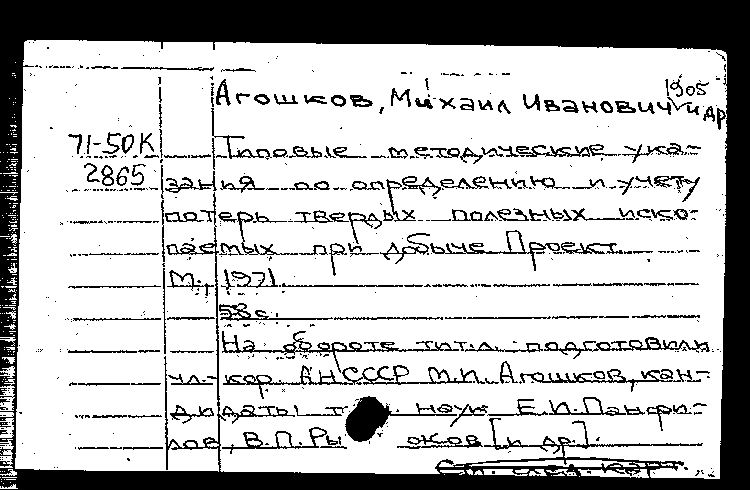 1905
Агошков, Михаил Иванович и др
71-50К
2865
Типовые методические ука-
зания по определению и учету
потерь твердых полезных иско-
паемых при добыче Проект.
М., 1971.
58с.
На обороте тит.л. подготовили
чл.-кор. АНСССР М.И. Агошков, кан-
дидаты т. наук Е.И. Панфи-
лов, В.П. Ры ков [и др].
См. след. карт.